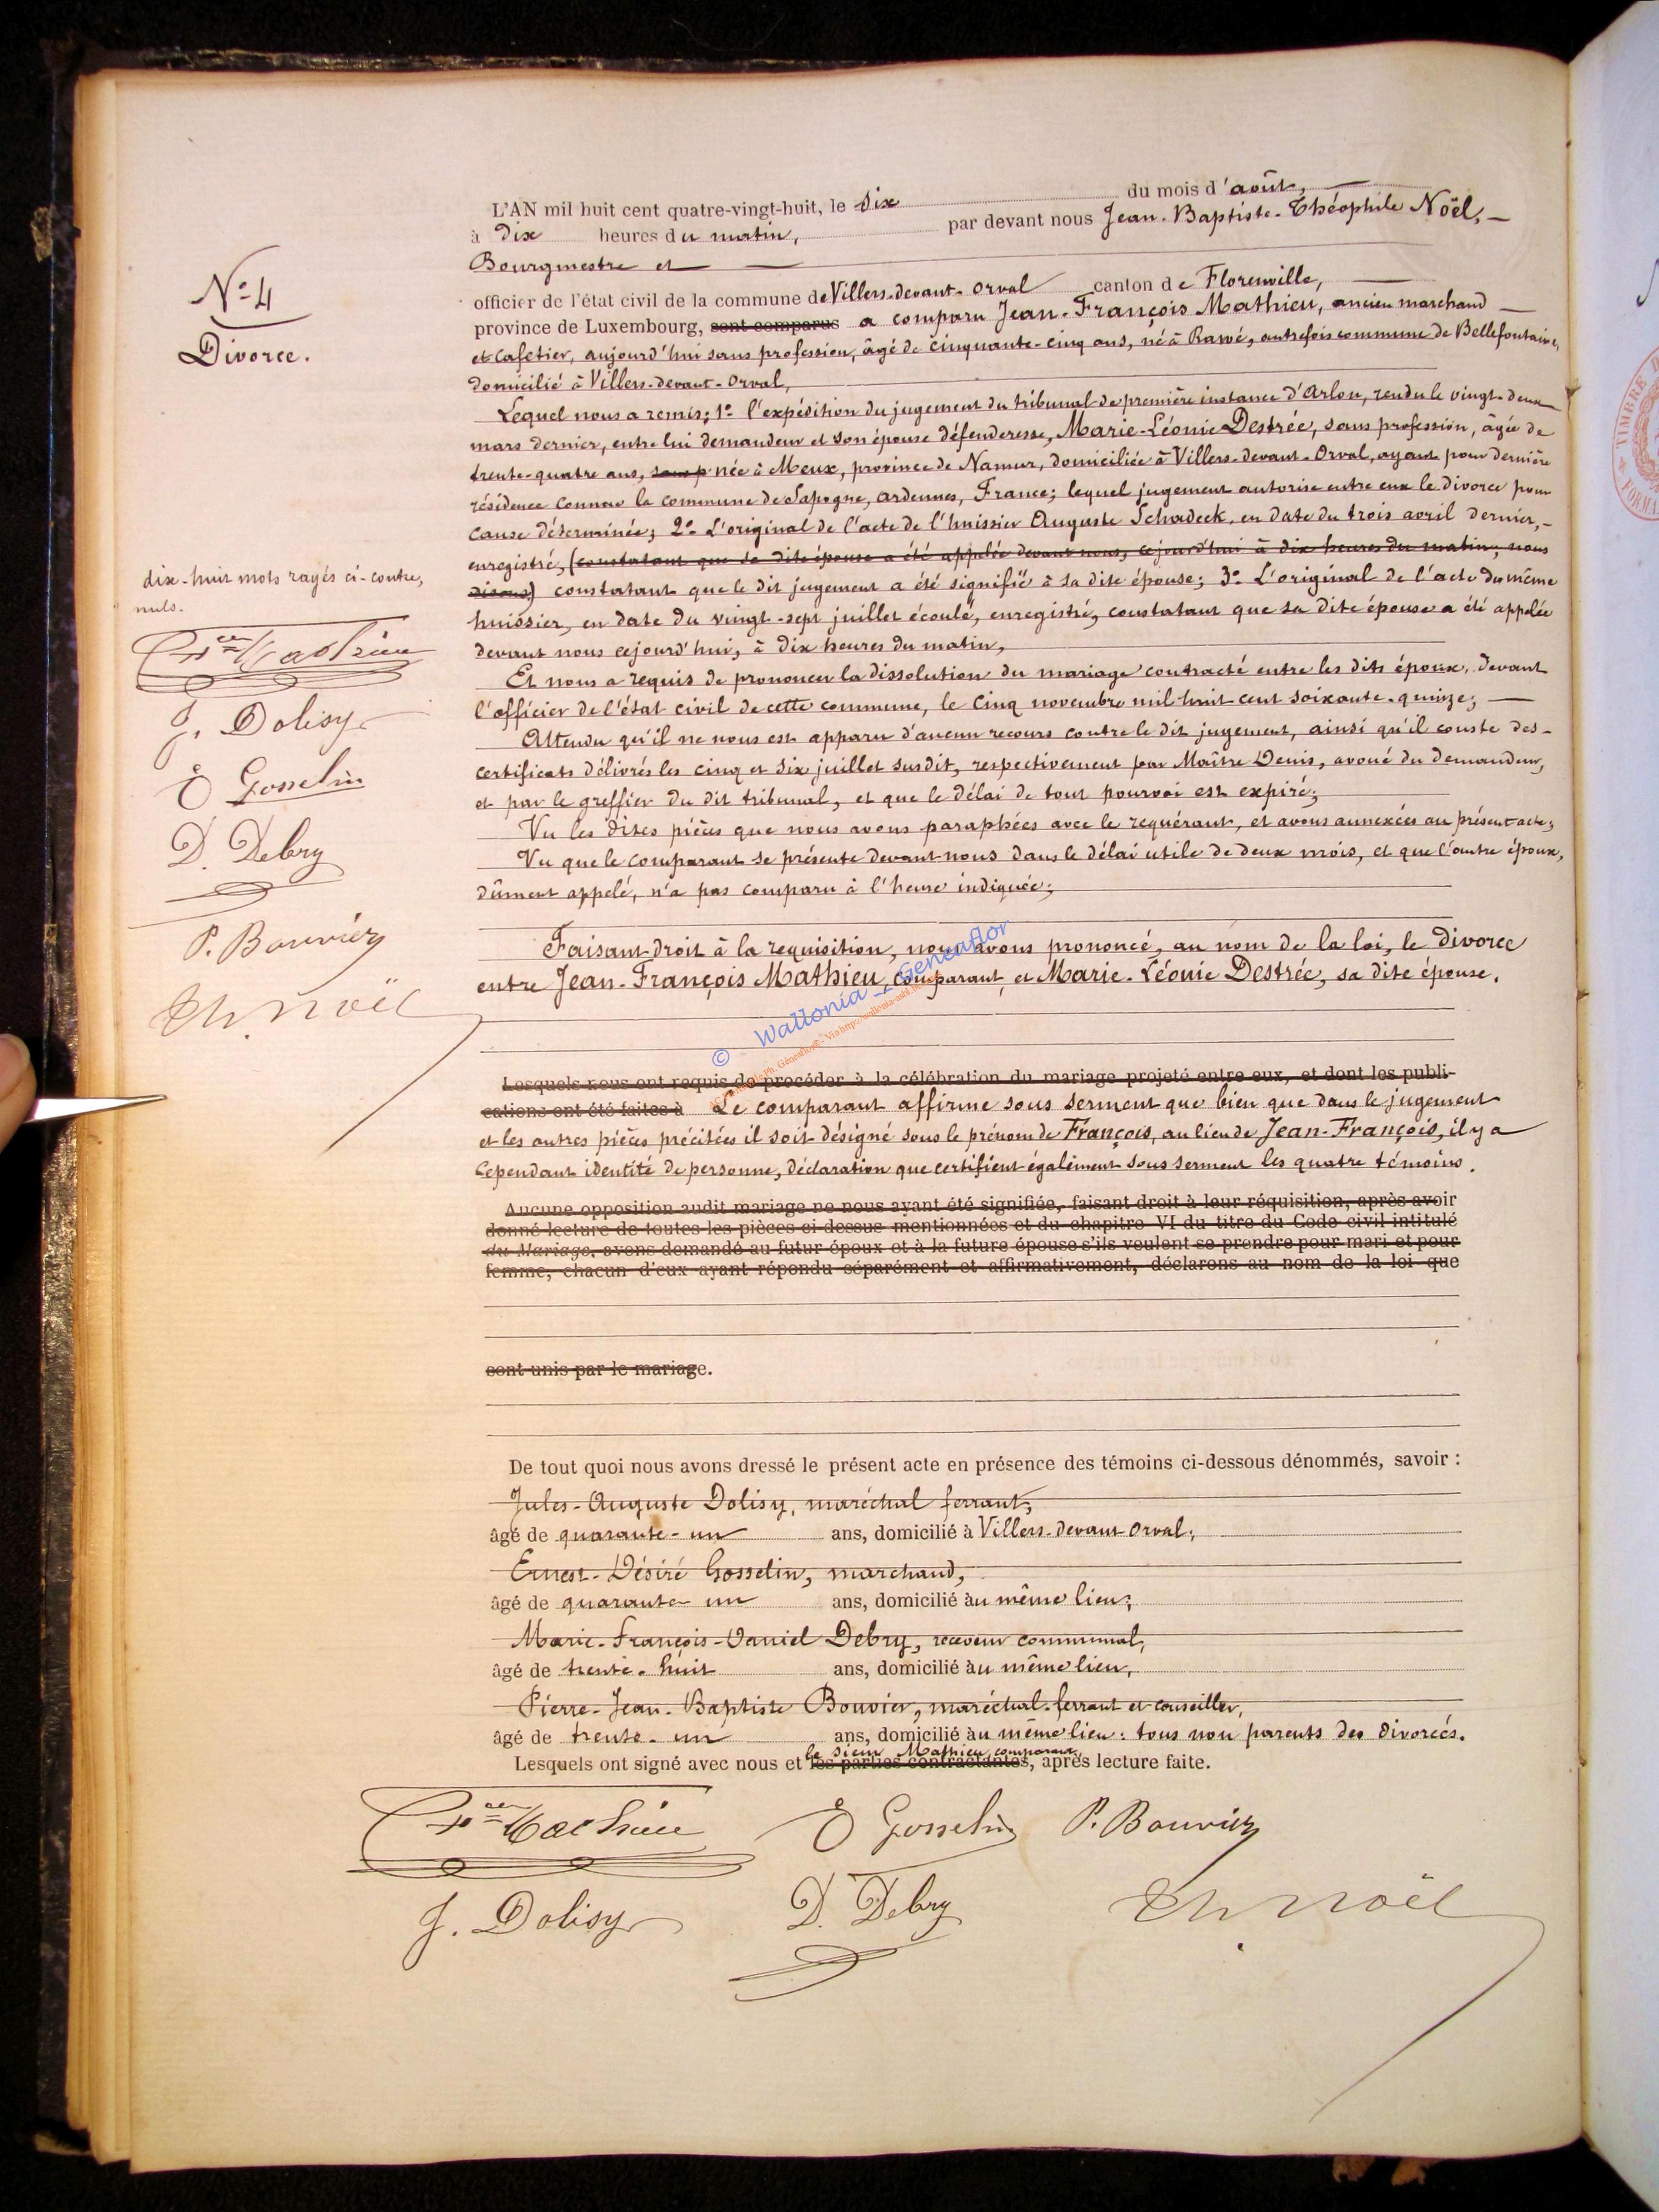 N° 4
Divorce.
L'AN mil huit cent quatre-vingt-huit, le dix du mois d'août,
à dix heures du matin, par devant nous Jean-Baptiste-Théophile Noël,
Bourgmestre et
officier de l'état civil de la commune de Villers-devant-Orval canton de Florenville,
province de Luxembourg, sont comparus a comparu Jean-François Mathieu, ancien marchand
et cafetier, aujourd'hui sans profession, âgé de cinquante-cinq ans, né à Rawé, autrefois commune de Bellefontaine,
domicilié à Villers-devant-Orval,
Lequel nous a remis; 1° l'expédition du jugement du tribunal de première instance d'Arlon, rendu le vingt-deux
mars dernier, entre lui demandeur et son épouse défenderesse, Marie-Léonie Destrée, sans profession, âgée de
trente-quatre ans, sans p née à Meux, province de Namur, domiciliée à Villers-devant-Orval, ayant pour dernière
résidence connue la commune de Sapogne, Ardennes, France; lequel jugement autorise entre eux le divorce pour
cause déterminée; 2° L'original de l'acte de l'huissier Auguste Schadeck, en date du trois avril dernier,
enregistré, (constatant que sa dite épouse a été appelée devant nous, cejourd'hui à dix heures du matin, nous
disons) constatant que le dit jugement a été signifié à sa dite épouse; 3° L'original de l'acte du même
huissier, en date du vingt-sept juillet écoulé, enregistré, constatant que sa dite épouse a été appelée
devant nous cejourd'hui, à dix heures du matin,
Et nous a requis de prononcer la dissolution du mariage contracté entre les dits époux, devant
l'officier de l'état civil de cette commune, le cinq novembre mil huit cent soixante-quinze;
Attendu qu'il ne nous est apparu d'aucun recours contre le dit jugement, ainsi qu'il conste des
certificats délivrés les cinq et six juillet susdit, respectivement par Maître Denis, avoué du demandeur,
et par le greffier du dit tribunal, et que le délai de tout pourvoi est expiré;
Vu les dites pièces que nous avons paraphées avec le requérant, et avons annexées au présent acte;
Vu que le comparant se présente devant nous dans le délai utile de deux mois, et que l'autre époux,
dûment appelé, n'a pas comparu à l'heure indiquée;
Faisant droit à la requisition, nous avons prononcé, au nom de la loi, le divorce
entre Jean-François Mathieu, comparant, et Marie-Léonie Destrée, sa dite épouse.
dix-huit mots rayés ci-contre,
nuls.
Fçois Mathieu
J. Dolisy
E Gosselin
D. Debry
P. Bouvier
Th. Noël
© Wallonia - Geneaflor
Lesquels nous ont requis de procéder à la célébration du mariage projeté entre eux, et dont les publi-
cations ont été faites à Le comparant affirme sous serment que bien que dans le jugement
et les autres pièces précitées il soit désigné sous le prénom de François, au lieu de Jean-François, il y a
cependant identité de personne, déclaration que certifient également sous serment les quatre témoins.
Aucune opposition audit mariage ne nous ayant été signifiée, faisant droit à leur réquisition, après avoir
donné lecture de toutes les pièces ci-dessus mentionnées et du chapitre VI du titre du Code civil intitulé
du Mariage, avons demandé au futur époux et à la future épouse s'ils veulent se prendre pour mari et pour
femme, chacun d'eux ayant répondu séparément et affirmativement, déclarons au nom de la loi que
sont unis par le mariage.
De tout quoi nous avons dressé le présent acte en présence des témoins ci-dessous dénommés, savoir :
Jules-Auguste Dolisy, maréchal ferrant,
âgé de quarante-un ans, domicilié à Villers-devant-Orval;
Ernest-Désiré Gosselin, marchand,
âgé de quarante-un ans, domicilié au même lieu;
Marie-François-Daniel Debry, receveur communal,
âgé de trente-huit ans, domicilié au même lieu,
Pierre-Jean-Baptiste Bouvier, maréchal-ferrant et conseiller,
âgé de trente-un ans, domicilié au même lieu: tous non parents des divorcés.
le sieur Mathieu, comparant,
Lesquels ont signé avec nous et les parties contractantes, après lecture faite.
Fçois Mathieu E Gosselin P. Bouvier
J. Dolisy D. Debry Th Noël
TIMBRE